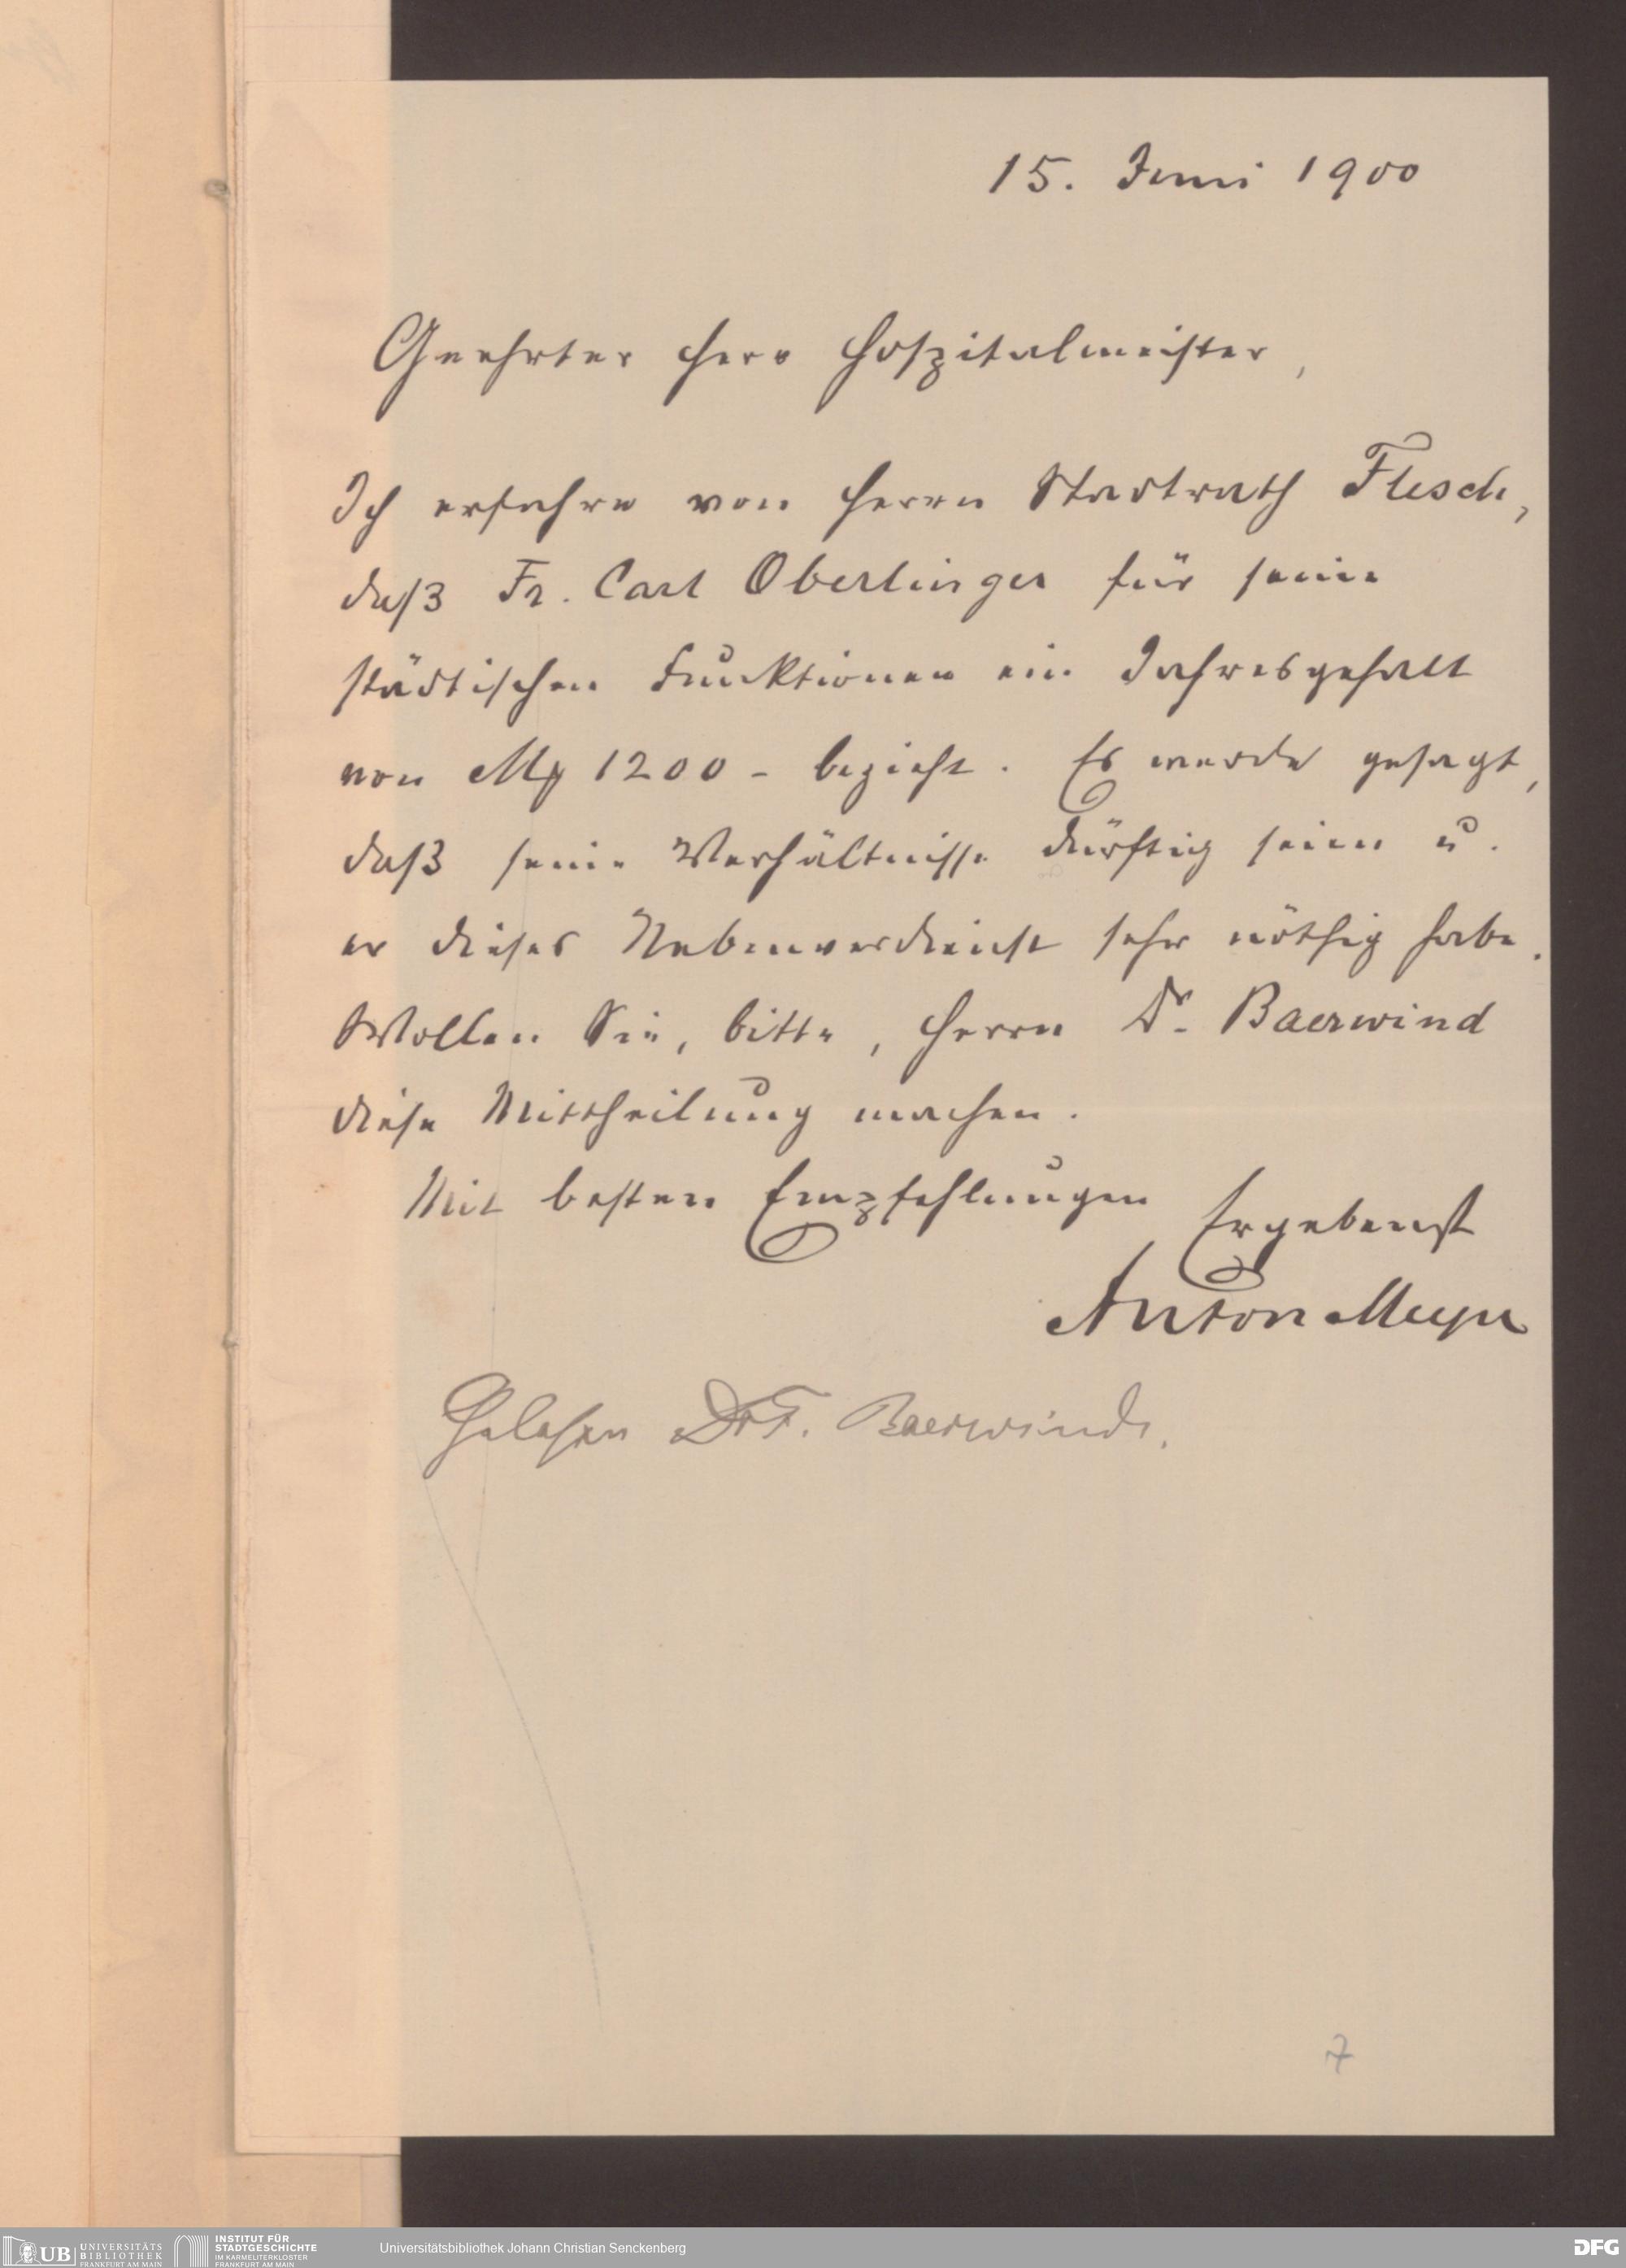 15. Juni 1900
Geehrter Herr Hospitalmeister,
Ich erfahre von Herrn Stadtrath Flesch,
daß Fr. Carl Oberlinger für seine
städtischen Funktionen ein Jahresgehalt
von M 1200 - bezieht. Es werde gesagt,
daß seine Verhältnisse dürftig seien u.
er dieses Nebenverdienst sehr nöthig habe.
Wollen Sie, bitte, Herrn Dr. Baerwind
diese Mittheilung machen.
Mit besten Empfehlungen
Ergebenst
Anton Meyer
Gelesen Dr F. Baerwind.
7
UB UNIVERSITÄTS
BIBLIOTHEK
FRANKFURT AM MAIN
INSTITUT FÜR
STADTGESCHICHTE
IM KARMELITERKLOSTER
FRANKFURT AM MAIN
Universitätsbibliothek Johann Christian Senckenberg
DFG